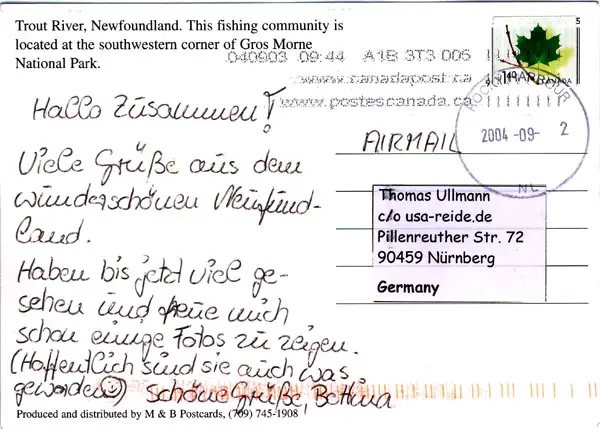 Trout River, Newfoundland. This fishing community is
located at the southwestern corner of Gros Morne
National Park.
040903 09:44 A1B 3T3 005
www.canadapost.ca
www.postescanada.ca
5
$1.40
CANADA
ROCKY HARBOUR
2004-09-2
NL
Hallo Zusammen!
AIRMAIL
Viele Grüße aus dem
wunderschönen Neufund-
land.
Haben bis jetzt viel ge-
sehen und freue mich
schon einige Fotos zu zeigen.
(Hoffentlich sind sie auch was
geworden ☺) Schöne Grüße, Bettina
Thomas Ullmann
c/o usa-reide.de
Pillenreuther Str. 72
90459 Nürnberg
Germany
Produced and distributed by M & B Postcards, (709) 745-1908